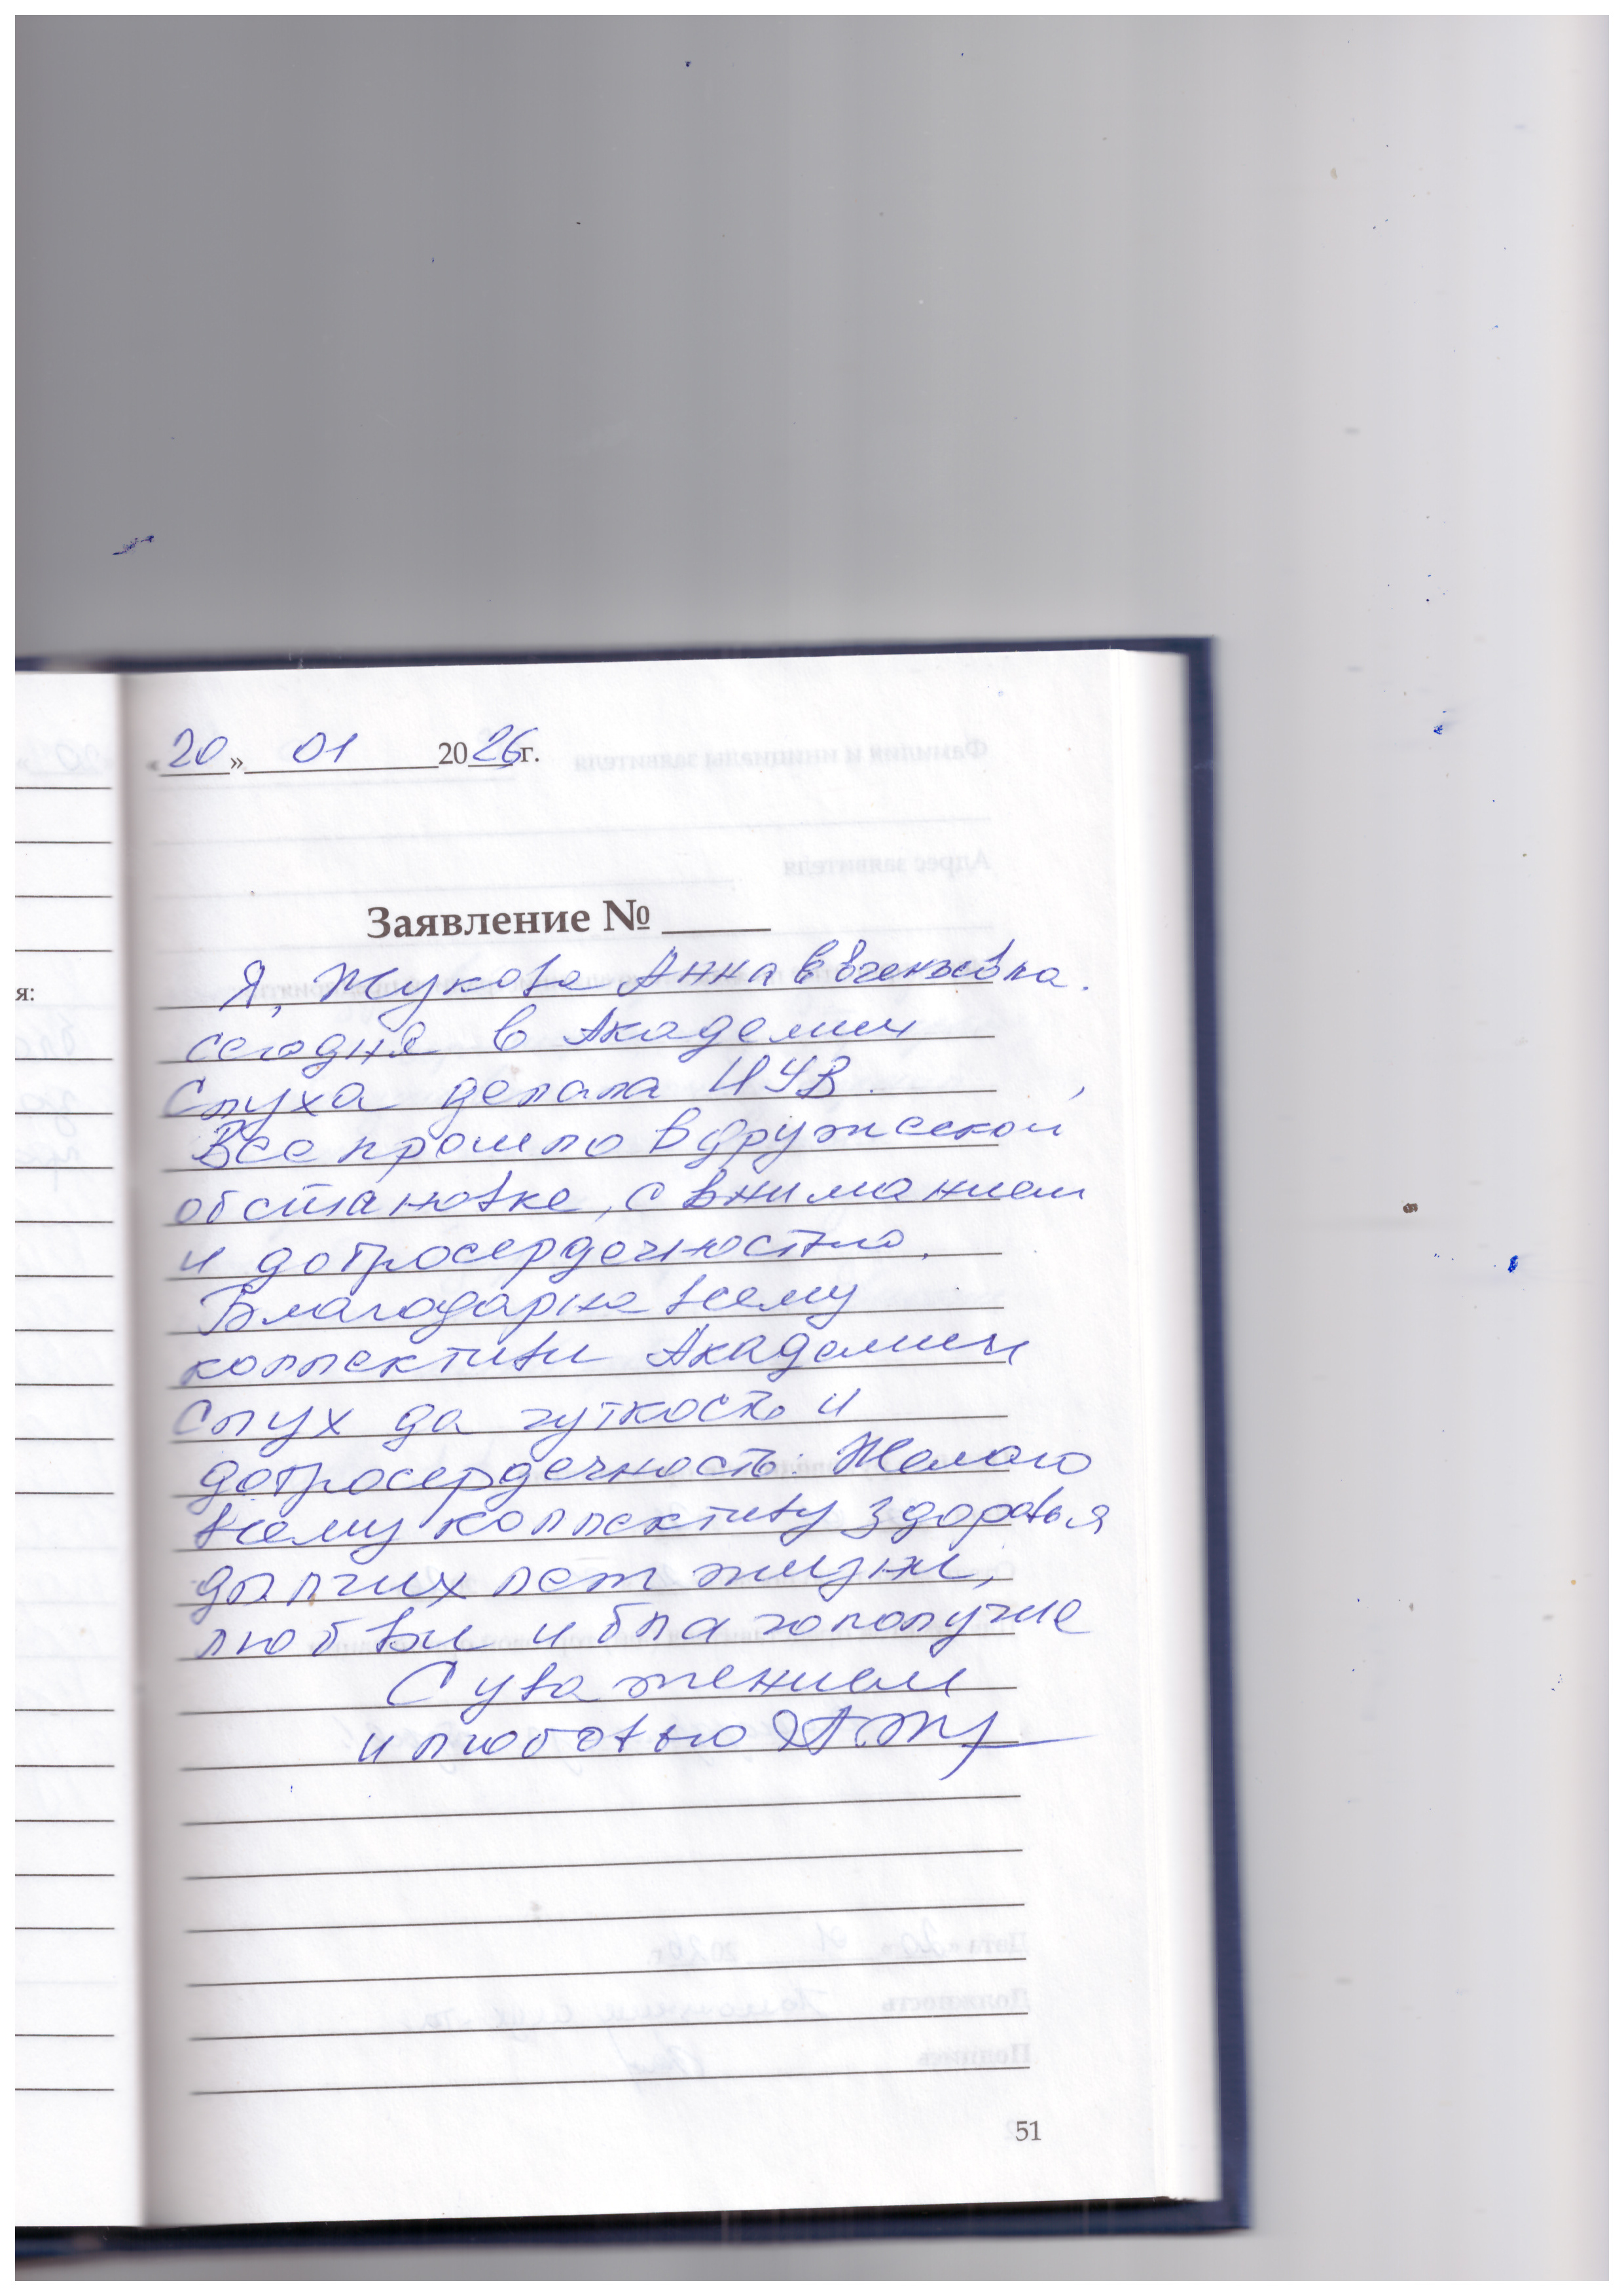 «20» 01 2026г.
Заявление №
я:
Я, Жукова Анна
сегодня в Академии
Слуха делала ИУВ.
Все прошло в дружеской
обстановке, с вниманием
и добросердечностью.
Благодарна всему
коллективи Академии
Слух да чуткость и
добросердечность. Желаю
всему коллективу здоровья
долгих лет жизни,
любви и благополучие
С уважением
и любовью
51